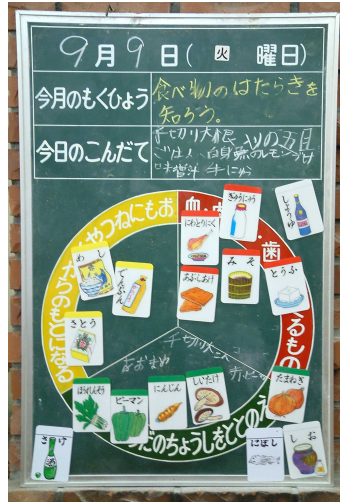 9月9日(火曜日)
今月のもくひょう
食べ物のはたらきを
知ろう。
今日のこんだて
千切り大根入りの五目
ごはん 白身魚のレモンづけ
味噌汁 牛にゅう
おもにねつや
ちからのもとになる
血
歯
るもの
からだのちょうしをととのえ
にわとりにく
ぎゅうにゅう
しょうゆ
めし
でんぷん
あぶらあげ
みそ
とうふ
さとう
千切り大こん
ほうれんそう
ピーマン
にんじん
しいたけ
たまねぎ
さけ
にぼし
しお